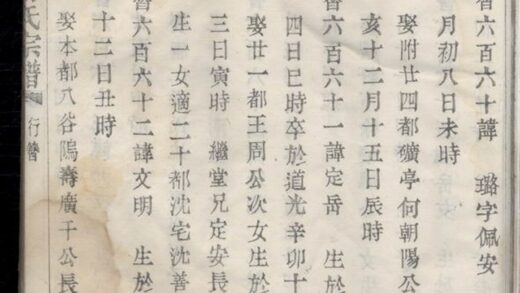 晉六百六十諱　璐字佩安
月初八日未時
娶附廿四都獷亭何朝陽公
亥十二月十五日辰時
晉六百六十一諱定岳　生於
四日巳時卒於道光辛卯十
娶廿一都王周公次女生於
三日寅時　繼堂兄定安長
生一女適二十都沈宅沈善
晉六百六十二諱文明　生於
十二日丑時
娶本都八谷隝壽廣千公長
氏宗譜　行晉